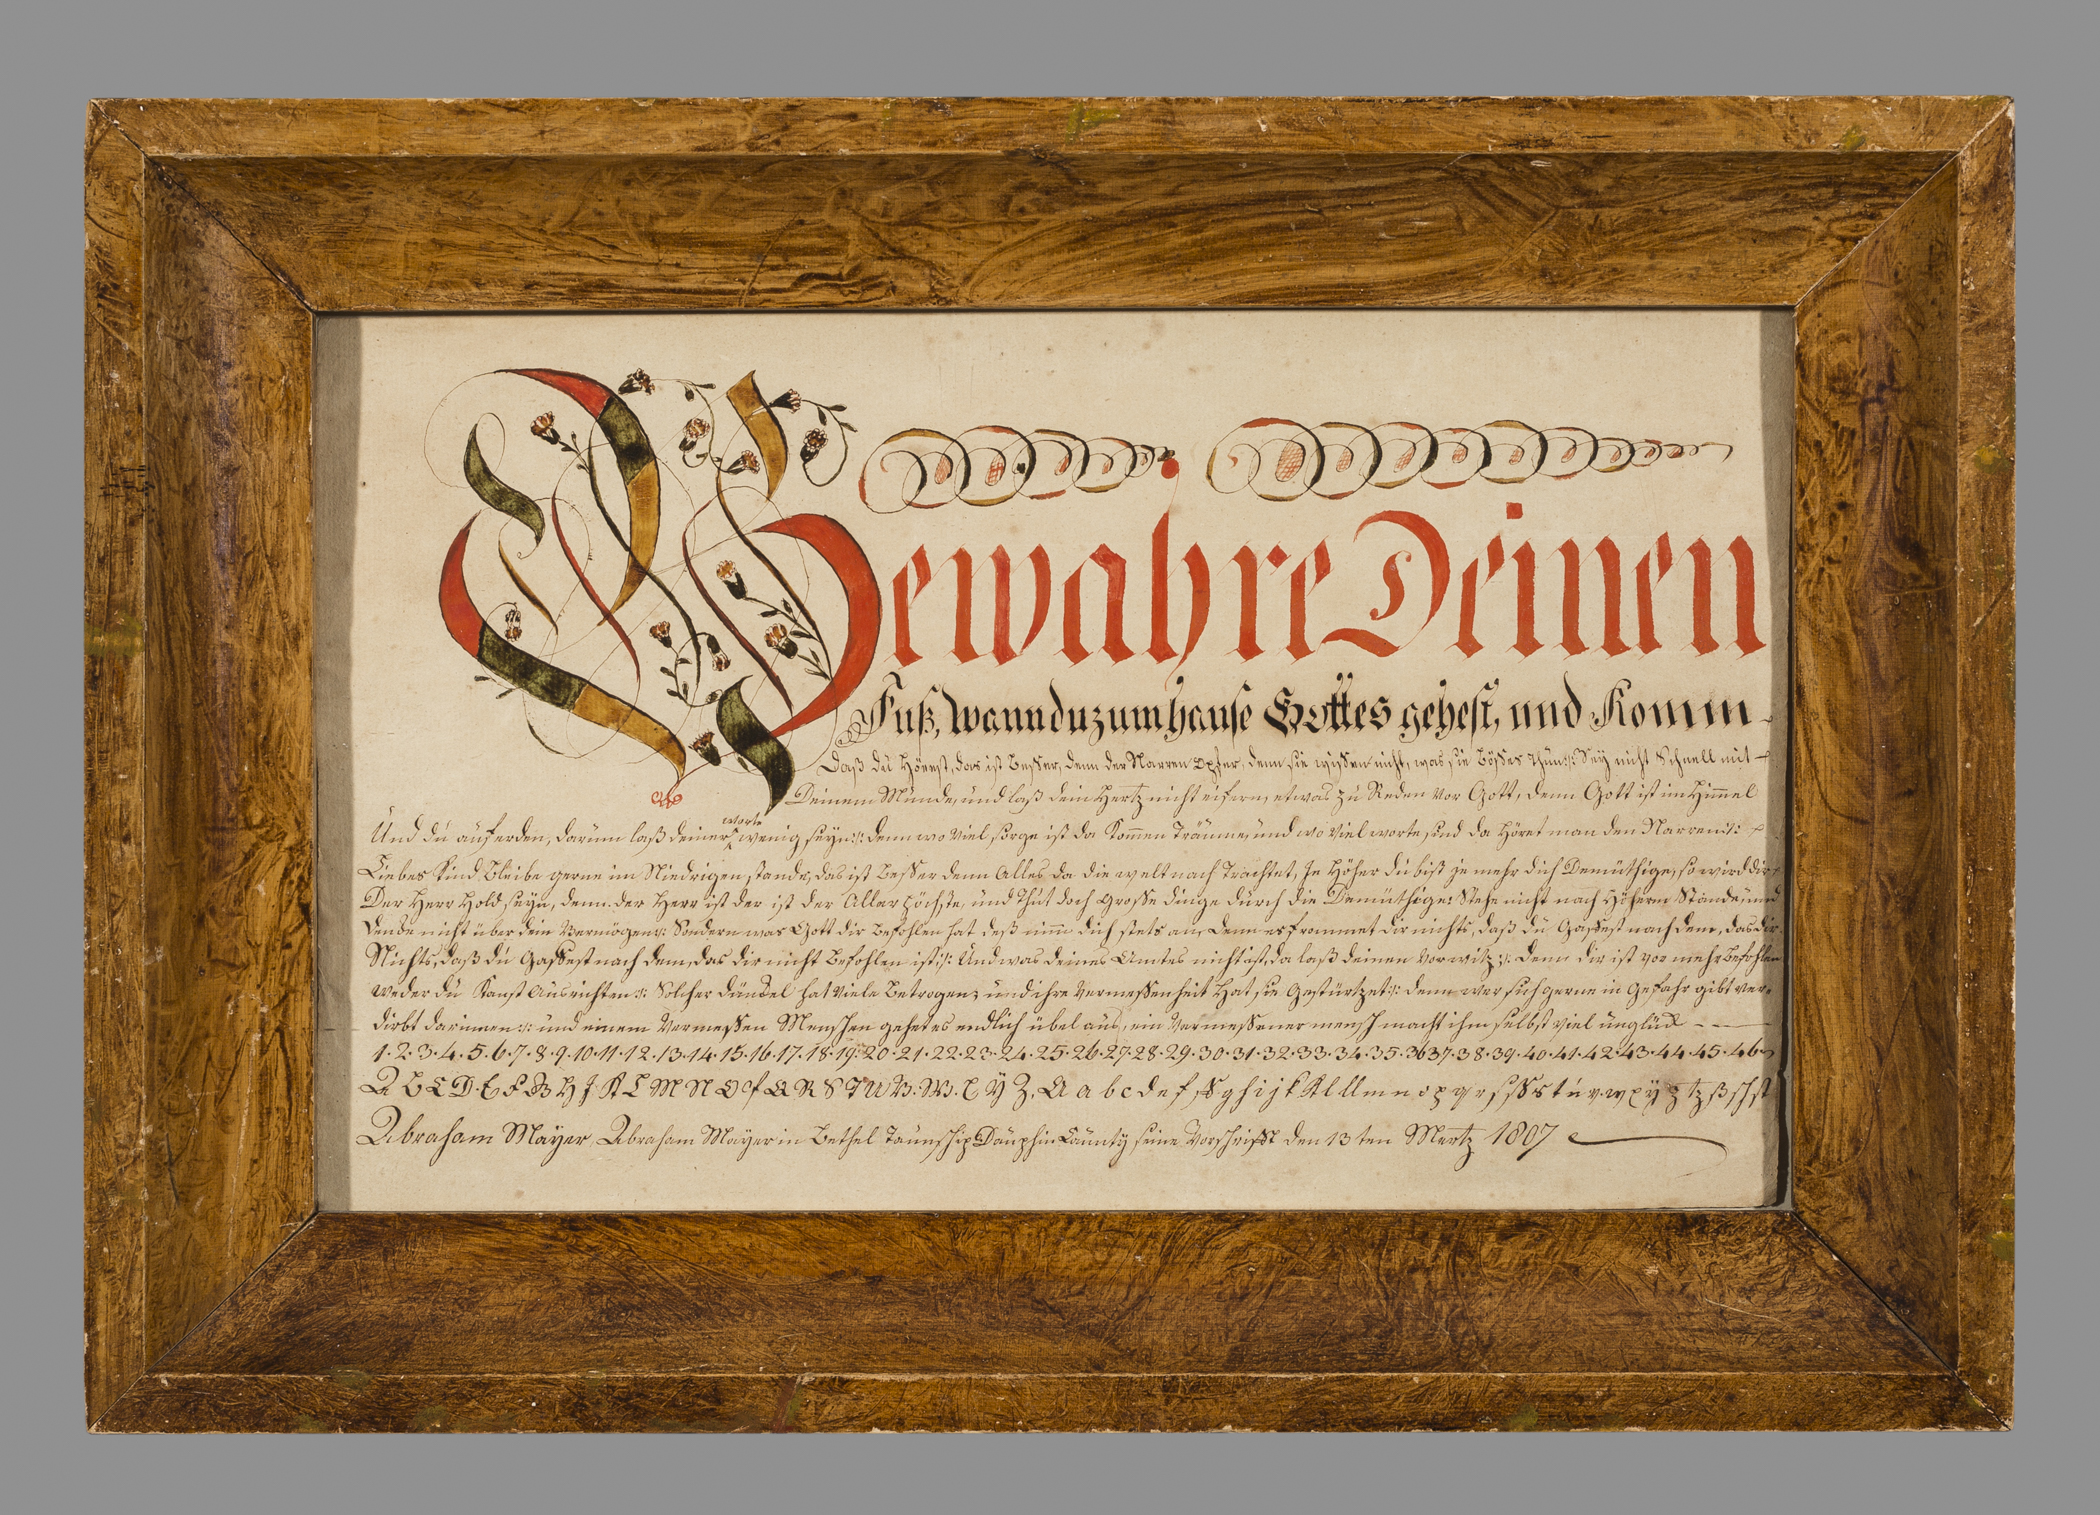 Bewahre Deinen
Fuß, wann du zum hause Gottes gehest, und Komm -
Daß du Hörest, das ist Besser, denn der Narren Opfer, denn sie wissen nicht, was sie Böses Thun :/: Sey nicht Schnell mit
Deinem Munde, und laß dein Hertz nicht eifern, etwas zu Reden vor Gott, denn Gott ist im Himmel
worte
Und du auf erden, darum laß deiner wenig seyn :/: denn wo viel sorge ist da Kommen Träume, und wo viel worte sind da Höret man den Narren :/:
Liebes Kind Bleibe gerne im Niedrigen stande, das ist Besser denn Alles da die welt nach Trachtet, Je Höher du bist je mehr dich Demüthige, so wird dir
Der Herr Hold seyn, denn der Herr ist der ist der Allerhöchste, und Thut doch Grosse dinge durch die Demüthige: Stehe nicht nach Höherm Stande, und
Dencke nicht über dein Vermögen :/: Sondern was Gott dir Befohlen hat deß nimm dich stets an, denn es frommet dir nichts, daß du Gaffest nach dem, das dir
Nichts, daß du Gaffest nach dem, das dir nicht Befohlen ist :/: Und was deines Amtes nicht ist, da laß deinen Vorwitz :/: Denn dir ist vor mehr Befohlen
weder du Kanst Ausrichten :/: Solcher dünckel hat Viele Betrogen, und ihre Vermessenheit Hat sie Gestürtzet :/: denn wer sich gerne in Gefahr gibt ver-
dirbt darinnen :/: und einem Vermessen Menschen gehet es endlich übel aus, ein Vermessener mensch macht ihm selbst viel unglück - - —
1·2·3·4·5·6·7·8·9·10·11·12·13·14·15·16·17·18·19·20·21·22·23·24·25·26·27·28·29·30·31·32·33·34·35·36 37·38·39·40·41·42·43·44·45·46
A B C D E F G H J K L M N O P Q R S T U V W X Y Z, A a b c d e f ff g h i j k K l ll m n o p q r s ſ ſs s t u v w x y z tz ß sch st
Abraham Mayer, Abraham Mayer in Bethel Taunschip Dauphin Caunty seine Vorschrifft den 13ten Mertz 1807